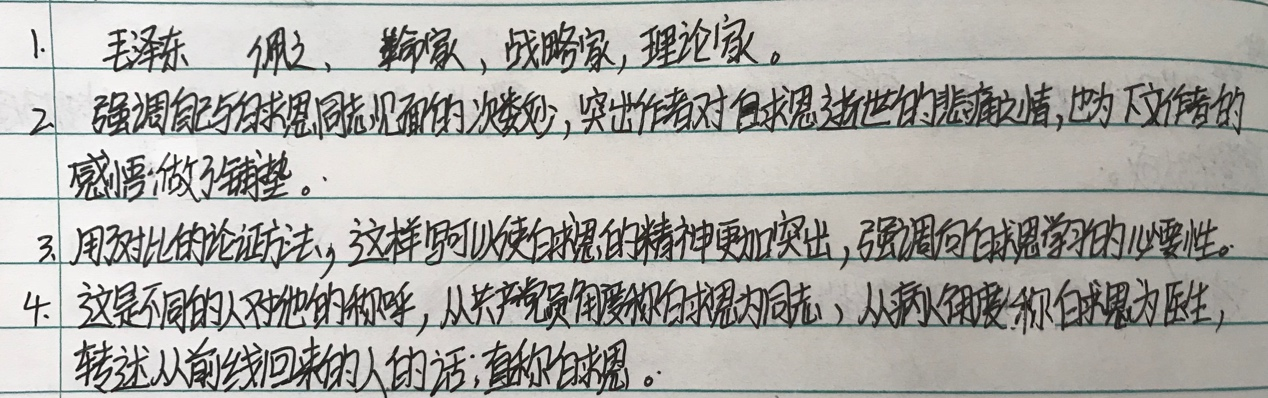 1. 毛泽东 佩之、革命家，战略家，理论家。
2. 强调自己与白求恩同志见面的次数少，突出作者对白求恩逝世的悲痛之情，也为下文作者的
感悟做了铺垫。
3. 用了对比的论证方法，这样写可以使白求恩的精神更加突出，强调向白求恩学习的必要性。
4. 这是不同的人对他的称呼，从共产党员角度称白求恩为同志、从病人角度称白求恩为医生，
转述从前线回来的人的话；直称白求恩。